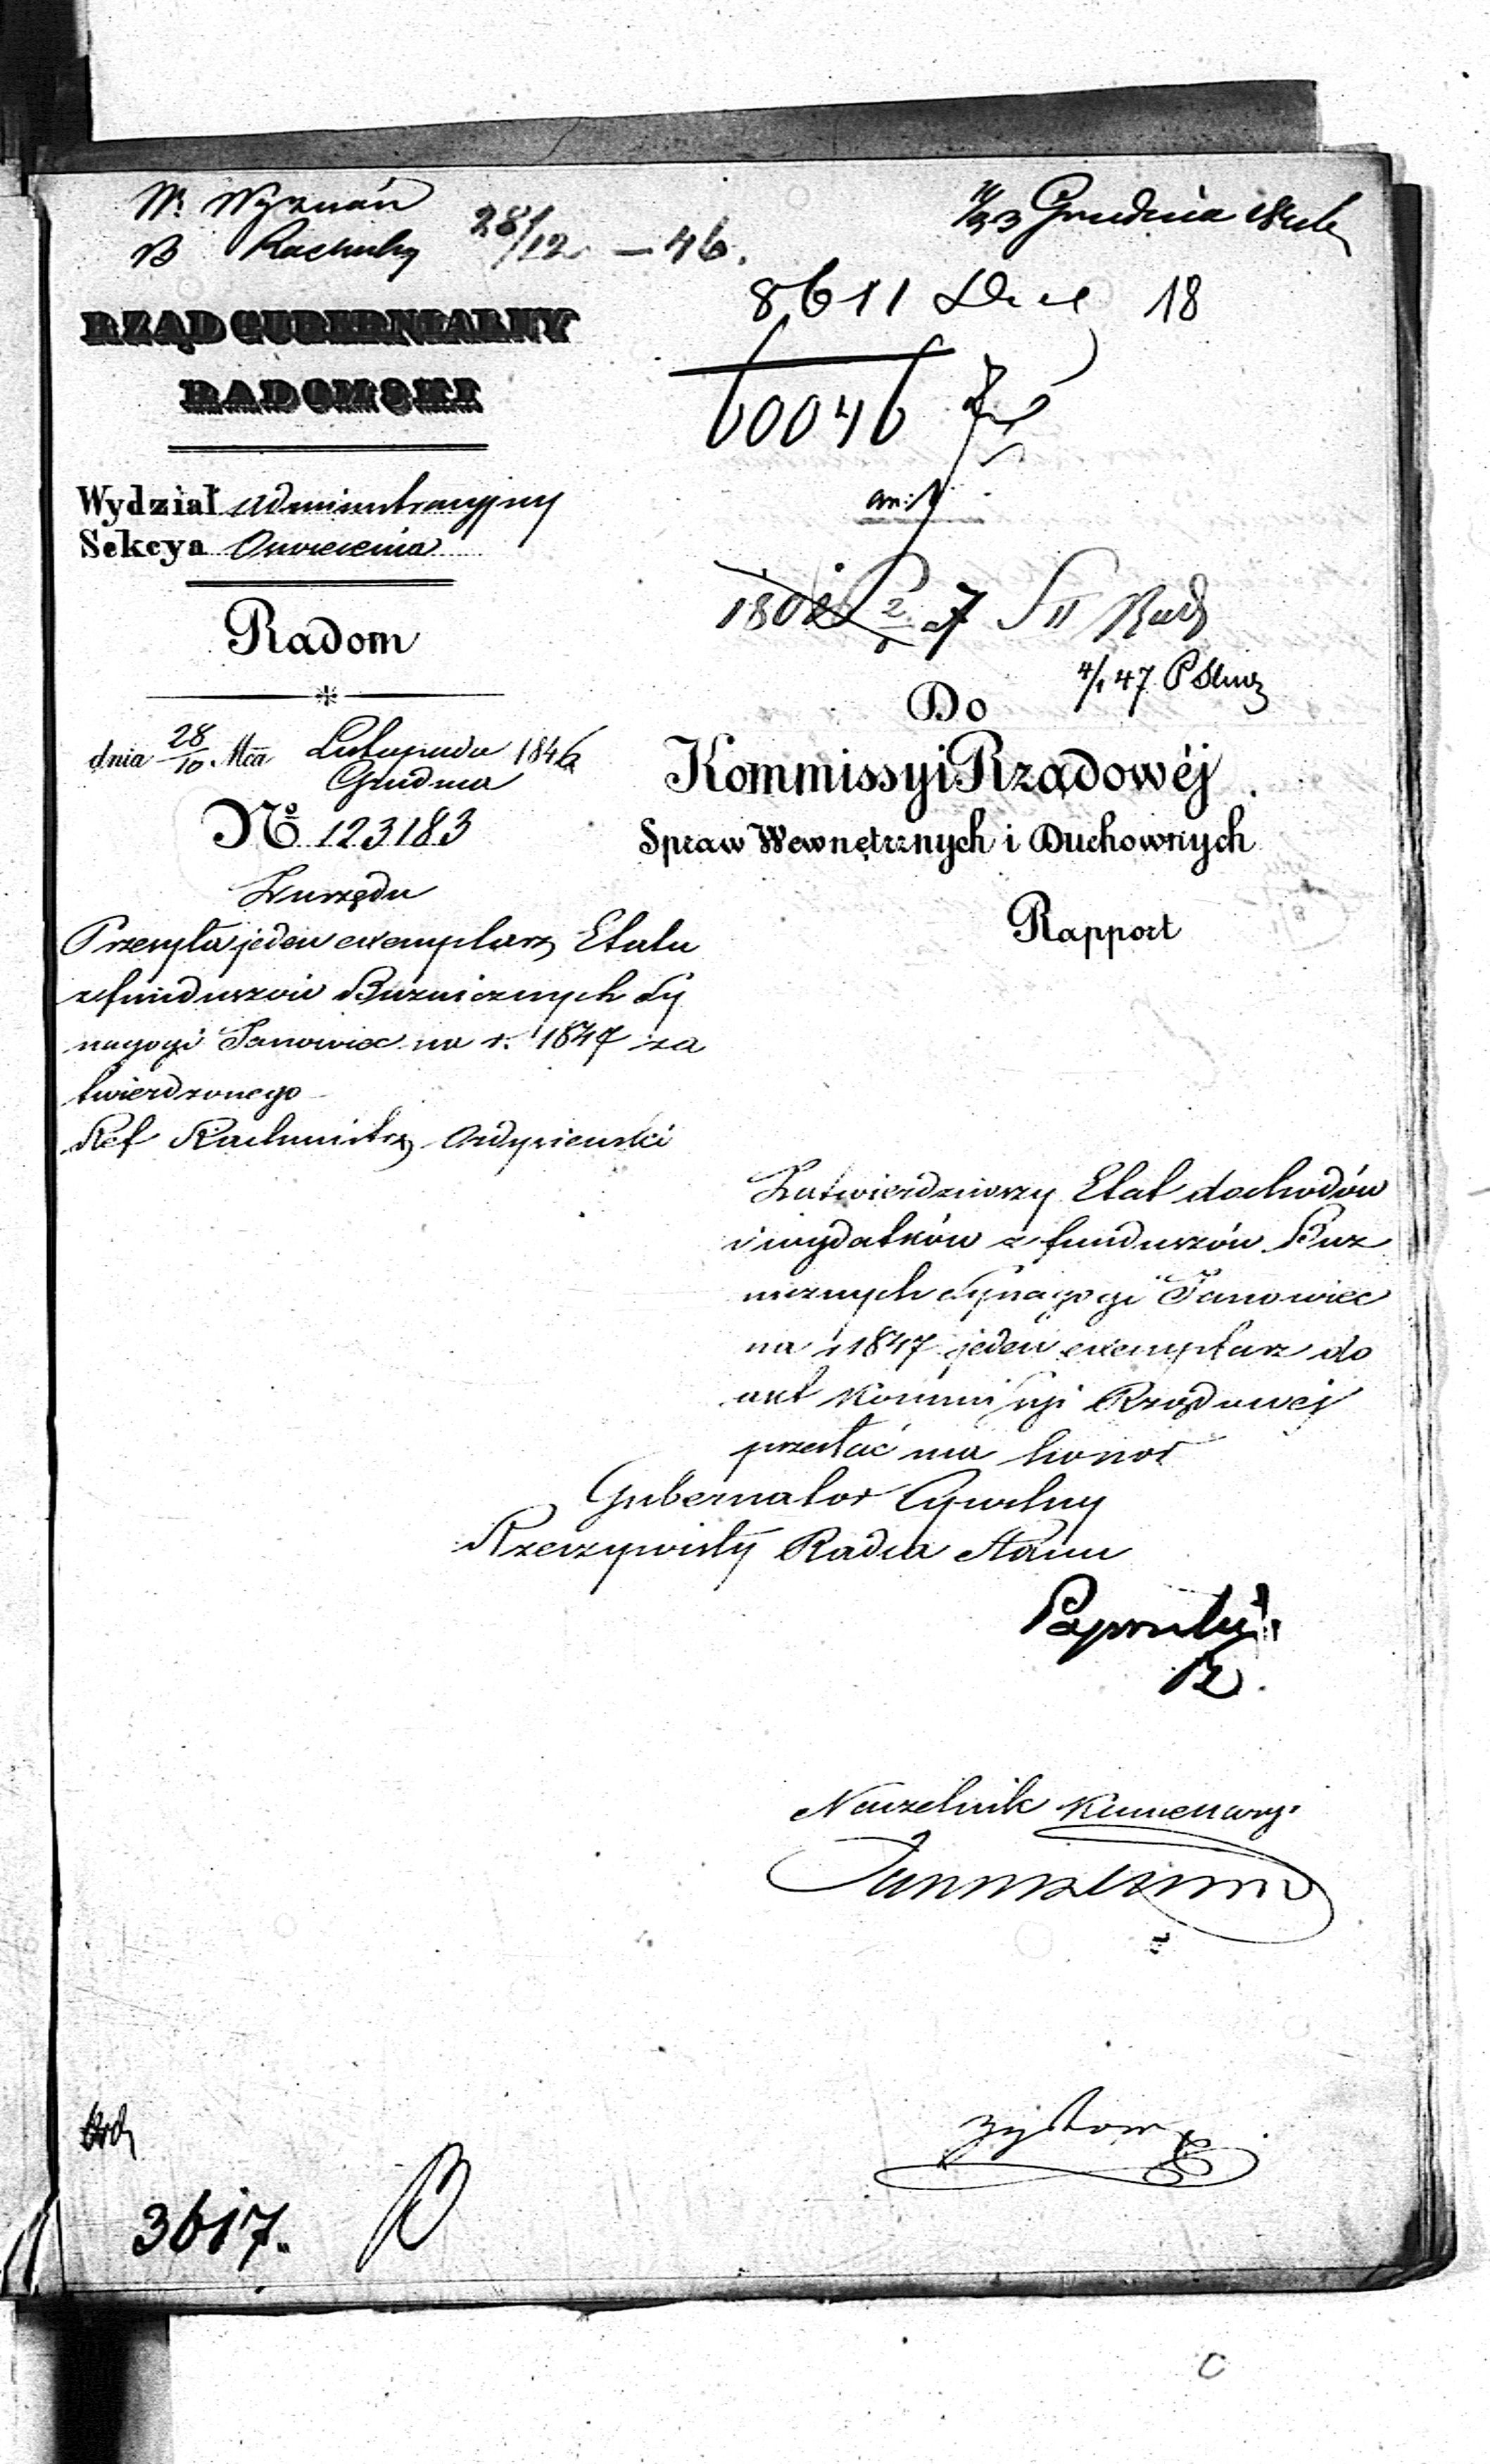 W. Wyznań
28/12 – 46.
11/23 Grudnia
8611
18
60046
RZĄD GUBERNIALNY
RADOMSKI
Wydział Administracyjny
Sekcya Oswiecenia
Radom
dnia 28/10 Mca Listopada 1846
Grudnia
No 123183
4/1 47
Do
Kommissyi Rządowéj
Spraw Wewnętrznych i Duchownych
Rapport
Z urzędu
Przesyła jeden exemplarz Etatu
z funduszów Bużnicznych Sy
nagogi Janowiec na r. 1847 za
twierdzonego
Ref
Zatwierdziwszy Etat dochodów
i wydatków z funduszów Buz
nicznych Synagogi Janowiec
na r 1847 jeden exemplarz do
akt Kommissyi Rządowej
przesłać ma honor
Gubernator Cywilny
Rzeczywisty Radca Stanu
Naczelnik Kancellaryi
3617.